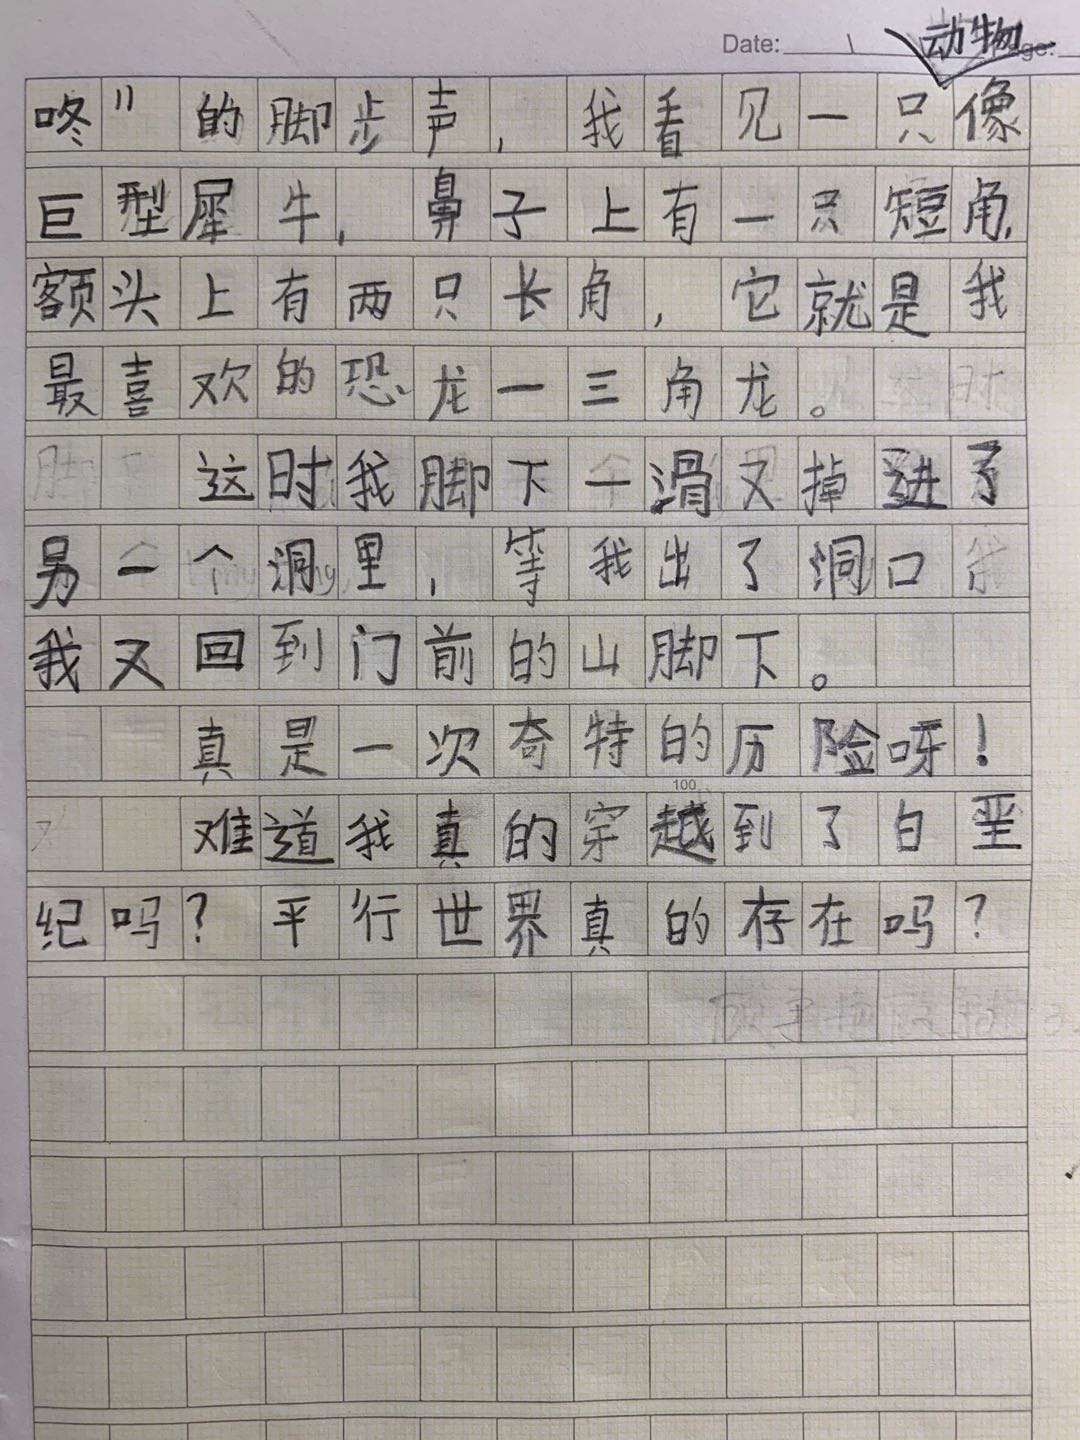 Date: 动物
咚”的脚步声，我看见一只像
巨型犀牛，鼻子上有一只短角，
额头上有两只长角，它就是我
最喜欢的恐龙一三角龙。
这时我脚下一滑又掉进了
另一个洞里，等我出了洞口
我又回到门前的山脚下。
真是一次奇特的历险呀！
100
难道我真的穿越到了白垩
纪吗？平行世界真的存在吗？